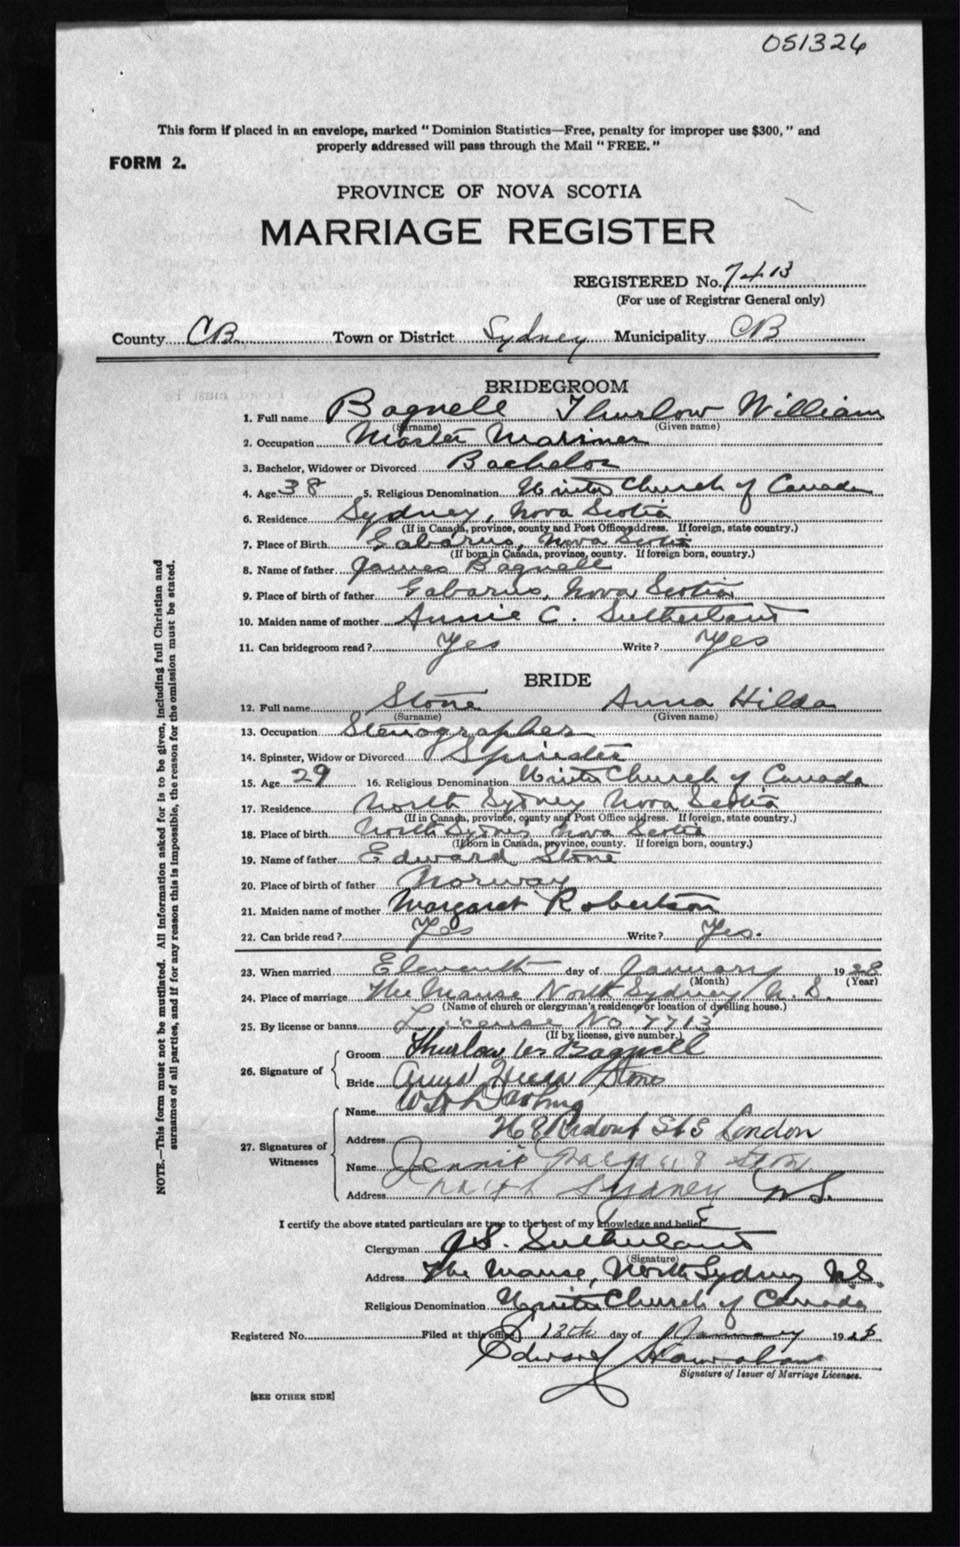 051326
This form if placed in an envelope, marked "Dominion Statistics—Free, penalty for improper use $300," and
properly addressed will pass through the Mail "FREE."
FORM 2.
PROVINCE OF NOVA SCOTIA
MARRIAGE REGISTER
REGISTERED No. 7413
(For use of Registrar General only)
County CB Town or District Sydney Municipality CB
BRIDEGROOM
1. Full name Bagnell Thurlow William
(Surname) (Given name)
2. Occupation Master Mariner
3. Bachelor, Widower or Divorced Bachelor
4. Age 38 5. Religious Denomination United Church of Canada
6. Residence Sydney, Nova Scotia
(If in Canada, province, county and Post Office address. If foreign, state country.)
7. Place of Birth Gabarus, Nova Scotia
(If born in Canada, province, county. If foreign born, country.)
8. Name of father James Bagnell
9. Place of birth of father Gabarus, Nova Scotia
10. Maiden name of mother Annie C. Sutherland
11. Can bridegroom read? Yes Write? Yes
BRIDE
12. Full name Stone Anna Hilda
(Surname) (Given name)
13. Occupation Stenographer
14. Spinster, Widow or Divorced Spinster
15. Age 29 16. Religious Denomination United Church of Canada
17. Residence North Sydney Nova Scotia
(If in Canada, province, county and Post Office address. If foreign, state country.)
18. Place of birth North Sydney Nova Scotia
(If born in Canada, province, county. If foreign born, country.)
19. Name of father Edward Stone
20. Place of birth of father Norway
21. Maiden name of mother Margaret Robertson
22. Can bride read? Yes Write? Yes.
23. When married Eleventh day of January 1928
(Month) (Year)
24. Place of marriage The Manse North Sydney N.S.
(Name of church or clergyman's residence or location of dwelling house.)
25. By license or banns License No. 7713
(If by license, give number.)
26. Signature of
Groom Thurlow Wm Bagnell
Bride Anna Hilda Stone
27. Signatures of Witnesses
Name
Address Ridout St S London
Name Jennie
Address North Sydney N.S.
I certify the above stated particulars are true to the best of my knowledge and belief
Clergyman J.S. Sutherland
(Signature)
Address The Manse, North Sydney N.S.
Religious Denomination United Church of Canada
Registered No. Filed at this office, 13th day of January 192
Edward
Signature of Issuer of Marriage Licenses.
[SEE OTHER SIDE]
NOTE.—This form must not be mutilated. All information asked for is to be given, including full Christian and
surnames of all parties, and if for any reason this is impossible, the reason for the omission must be stated.